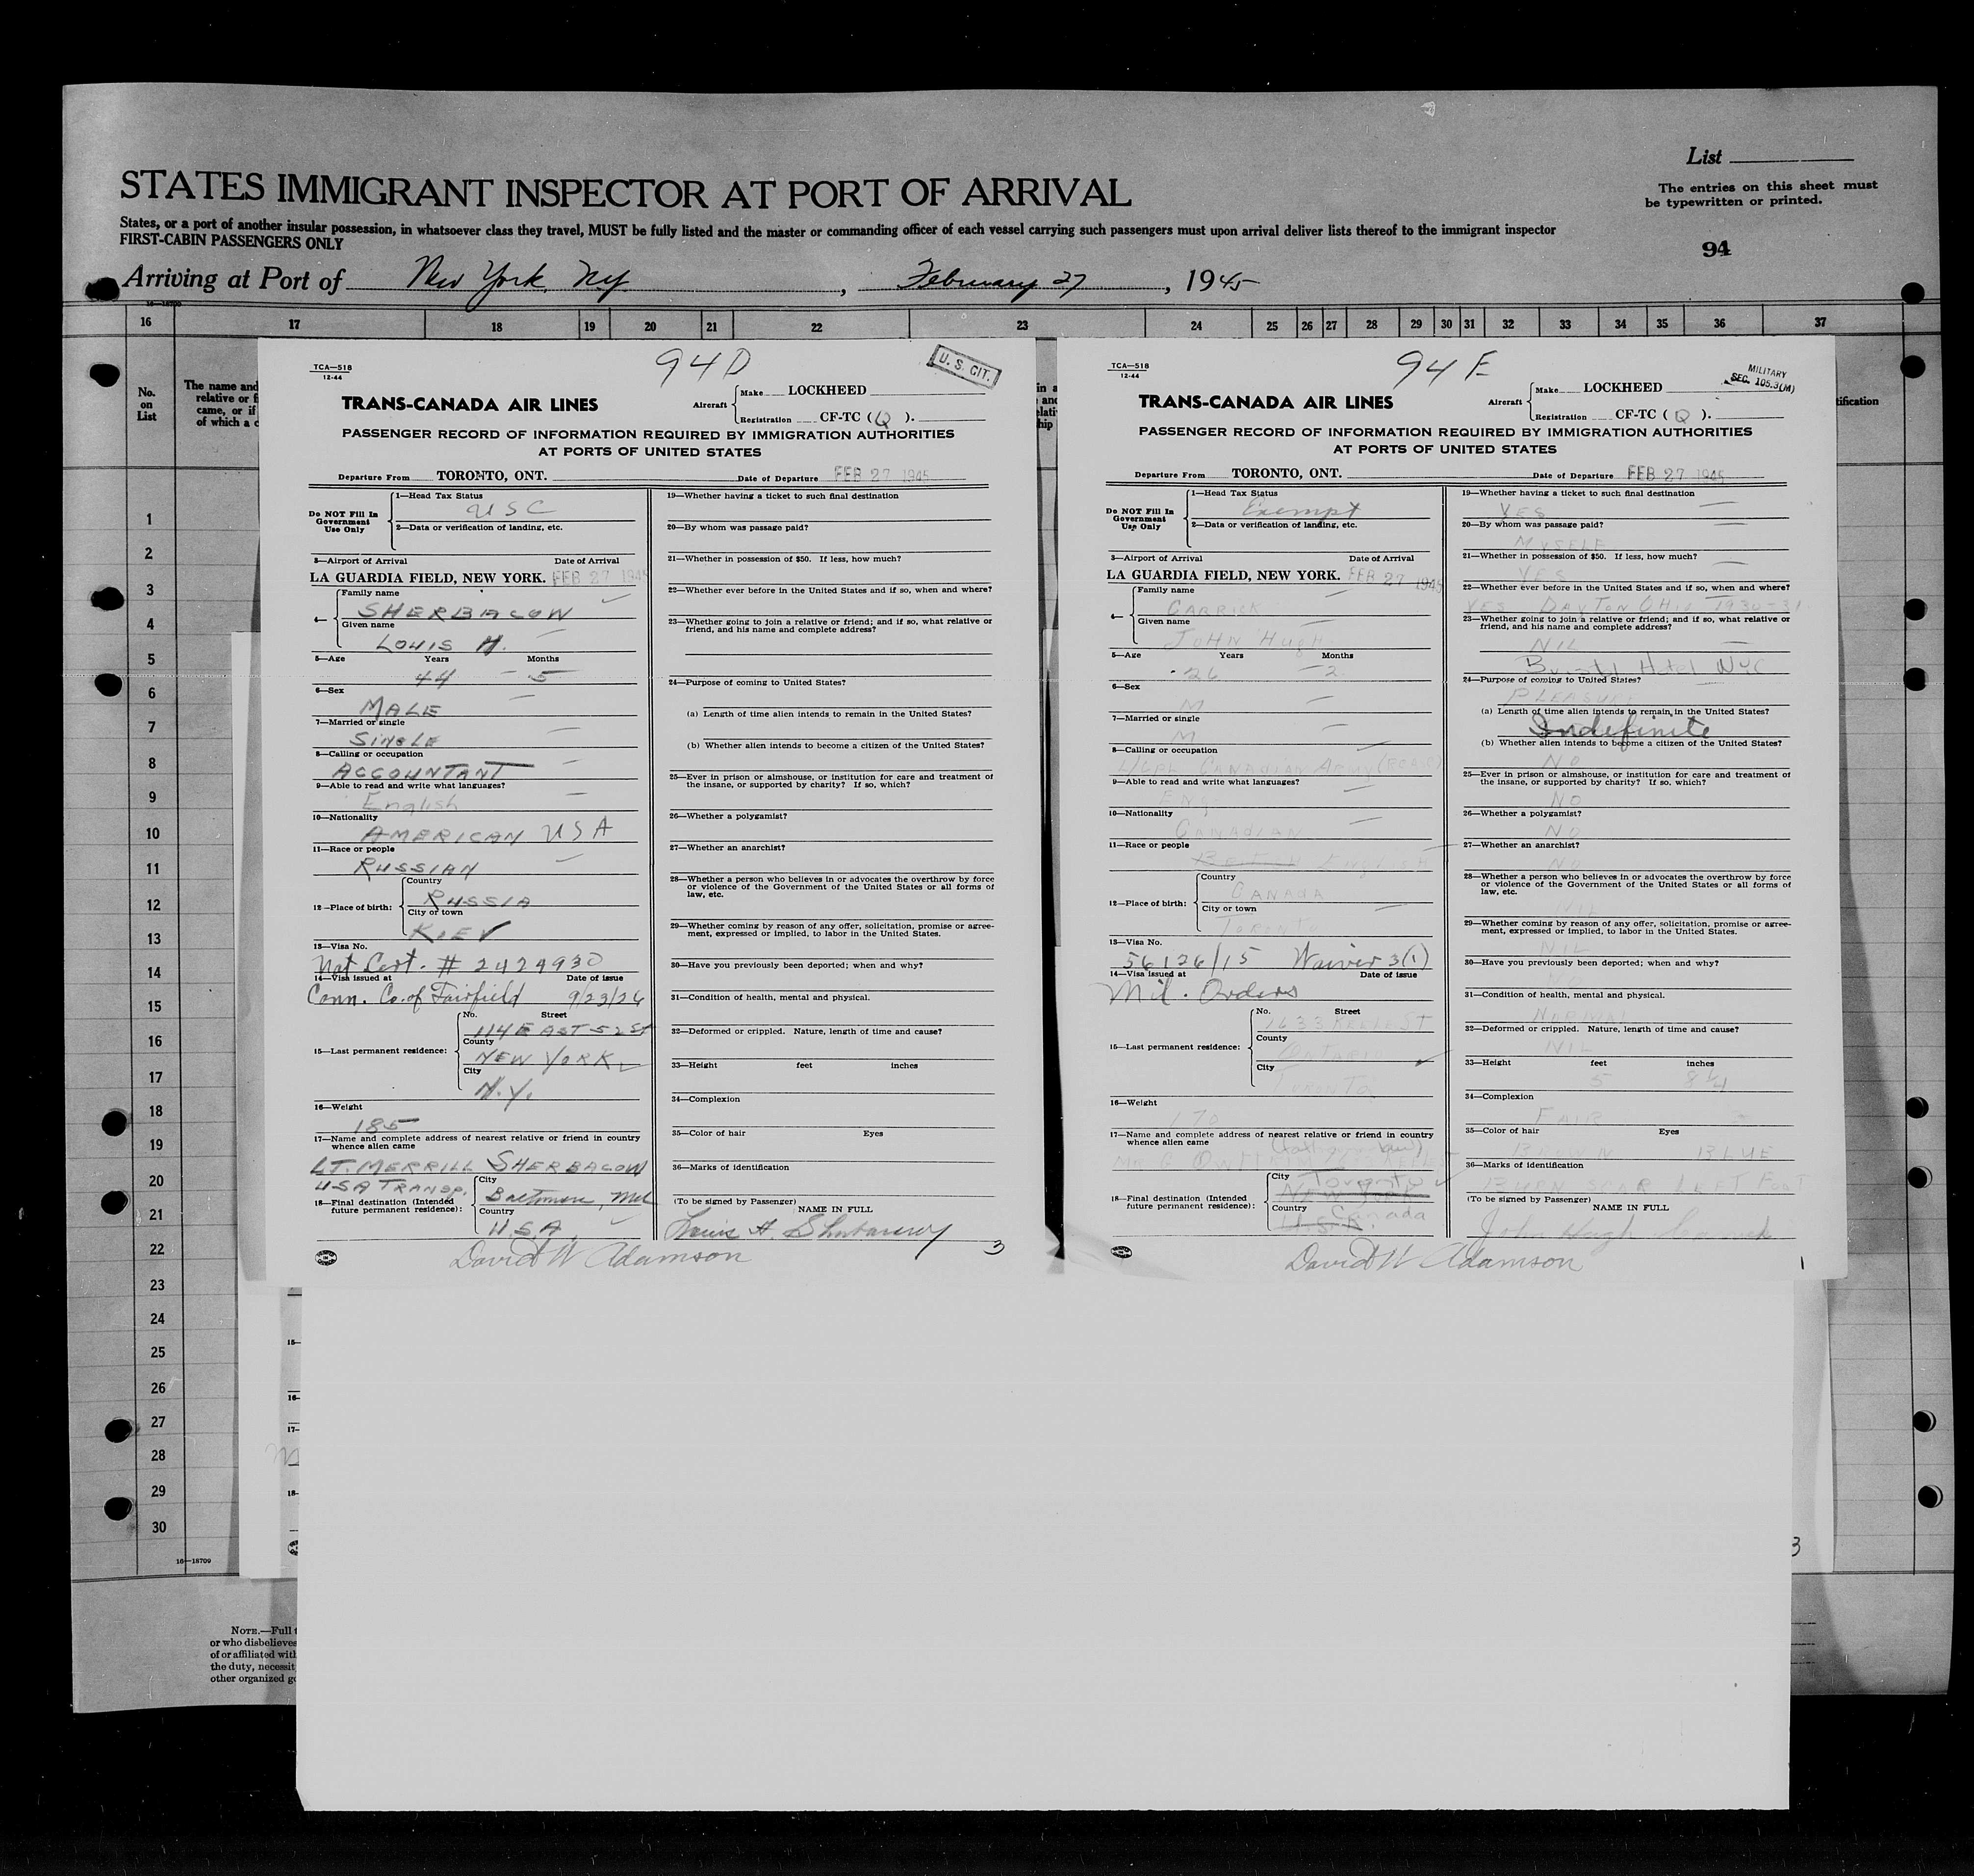 List
The entries on this sheet must
be typewritten or printed.
STATES IMMIGRANT INSPECTOR AT PORT OF ARRIVAL
States, or a port of another insular possession, in whatsoever class they travel, MUST be fully listed and the master or commanding officer of each vessel carrying such passengers must upon arrival deliver lists thereof to the immigrant inspector
FIRST-CABIN PASSENGERS ONLY
94
Arriving at Port of New York, NY, February 27, 1945
16—18709
16 17 18 19 20 21 22 23 24 25 26 27 28 29 30 31 32 33 34 35 36 37
No.
on
List
The name and
relative or f
came, or if
of which a c
1
2
3
4
5
6
7
8
9
10
11
12
13
14
15
16
17
18
19
20
21
22
23
24
25
26
27
28
29
30
16—18709
NOTE.—Full
or who disbelieves
of or affiliated with
the duty, necessit
other organized g
94D
U. S. CIT.
TCA—518
12-44
TRANS-CANADA AIR LINES
Aircraft
Make LOCKHEED
Registration CF-TC (Q).
PASSENGER RECORD OF INFORMATION REQUIRED BY IMMIGRATION AUTHORITIES
AT PORTS OF UNITED STATES
Departure From TORONTO, ONT. Date of Departure FEB 27 1945
Do NOT Fill In
Government
Use Only
1—Head Tax Status
USC
2—Data or verification of landing, etc.
3—Airport of Arrival Date of Arrival
LA GUARDIA FIELD, NEW YORK. FEB 27 1945
4—
Family name
SHERBACOW
Given name
LOUIS H.
5—Age Years Months
44 5
6—Sex
MALE
7—Married or single
SINGLE
8—Calling or occupation
ACCOUNTANT
9—Able to read and write what languages?
English
10—Nationality
AMERICAN USA
11—Race or people
RUSSIAN
12—Place of birth:
Country
RUSSIA
City or town
KIEV
13—Visa No.
Nat Cert. # 2424930
14—Visa issued at Date of issue
Conn. Co. of Fairfield 9/23/26
15—Last permanent residence:
No. Street
114 EAST 52 St
County
NEW YORK
City
N.Y.
16—Weight
185
17—Name and complete address of nearest relative or friend in country
whence alien came
LT. MERRILL SHERBACOW
USA TRANSP.
18—Final destination (Intended
future permanent residence):
City
Baltimore, Md
Country
U.S.A.
19—Whether having a ticket to such final destination
20—By whom was passage paid?
21—Whether in possession of $50. If less, how much?
22—Whether ever before in the United States and if so, when and where?
23—Whether going to join a relative or friend; and if so, what relative or
friend, and his name and complete address?
24—Purpose of coming to United States?
(a) Length of time alien intends to remain in the United States?
(b) Whether alien intends to become a citizen of the United States?
25—Ever in prison or almshouse, or institution for care and treatment of
the insane, or supported by charity? If so, which?
26—Whether a polygamist?
27—Whether an anarchist?
28—Whether a person who believes in or advocates the overthrow by force
or violence of the Government of the United States or all forms of
law, etc.
29—Whether coming by reason of any offer, solicitation, promise or agree-
ment, expressed or implied, to labor in the United States.
30—Have you previously been deported; when and why?
31—Condition of health, mental and physical.
32—Deformed or crippled. Nature, length of time and cause?
33—Height feet inches
34—Complexion
35—Color of hair Eyes
36—Marks of identification
(To be signed by Passenger) NAME IN FULL
Louis H. Sherbacow
David W Adamson
3
94E
MILITARY
SEC. 105.3(M)
TCA—518
12-44
TRANS-CANADA AIR LINES
Aircraft
Make LOCKHEED
Registration CF-TC (Q).
PASSENGER RECORD OF INFORMATION REQUIRED BY IMMIGRATION AUTHORITIES
AT PORTS OF UNITED STATES
Departure From TORONTO, ONT. Date of Departure FEB 27 1945
Do NOT Fill In
Government
Use Only
1—Head Tax Status
Exempt
2—Data or verification of landing, etc.
3—Airport of Arrival Date of Arrival
LA GUARDIA FIELD, NEW YORK. FEB 27 1945
4—
Family name
CARRICK
Given name
JOHN Hugh
5—Age Years Months
26 2
6—Sex
M
7—Married or single
M
8—Calling or occupation
CANADIAN ARMY
9—Able to read and write what languages?
ENG
10—Nationality
CANADIAN
11—Race or people
ENGLISH
12—Place of birth:
Country
CANADA
City or town
TORONTO
13—Visa No.
56126/15 Waiver 3(1)
14—Visa issued at Date of issue
Mil. Orders
15—Last permanent residence:
No. Street
ST
County
ONTARIO
City
TORONTO
16—Weight
170
17—Name and complete address of nearest relative or friend in country
whence alien came
18—Final destination (Intended
future permanent residence):
City
Toronto
NEW YORK
Country
Canada
U.S.A.
19—Whether having a ticket to such final destination
YES
20—By whom was passage paid?
MYSELF
21—Whether in possession of $50. If less, how much?
YES
22—Whether ever before in the United States and if so, when and where?
YES DAYTON OHIO 1930-31
23—Whether going to join a relative or friend; and if so, what relative or
friend, and his name and complete address?
NIL
Hotel NYC
24—Purpose of coming to United States?
PLEASURE
(a) Length of time alien intends to remain in the United States?
Indefinite
(b) Whether alien intends to become a citizen of the United States?
NO
25—Ever in prison or almshouse, or institution for care and treatment of
the insane, or supported by charity? If so, which?
NO
26—Whether a polygamist?
NO
27—Whether an anarchist?
NO
28—Whether a person who believes in or advocates the overthrow by force
or violence of the Government of the United States or all forms of
law, etc.
NIL
29—Whether coming by reason of any offer, solicitation, promise or agree-
ment, expressed or implied, to labor in the United States.
NIL
30—Have you previously been deported; when and why?
31—Condition of health, mental and physical.
NORMAL
32—Deformed or crippled. Nature, length of time and cause?
NIL
33—Height feet inches
5 8 1/4
34—Complexion
FAIR
35—Color of hair Eyes
BROWN BLUE
36—Marks of identification
BURN SCAR LEFT FOOT
(To be signed by Passenger) NAME IN FULL
John Hugh Carrick
David W Adamson
1